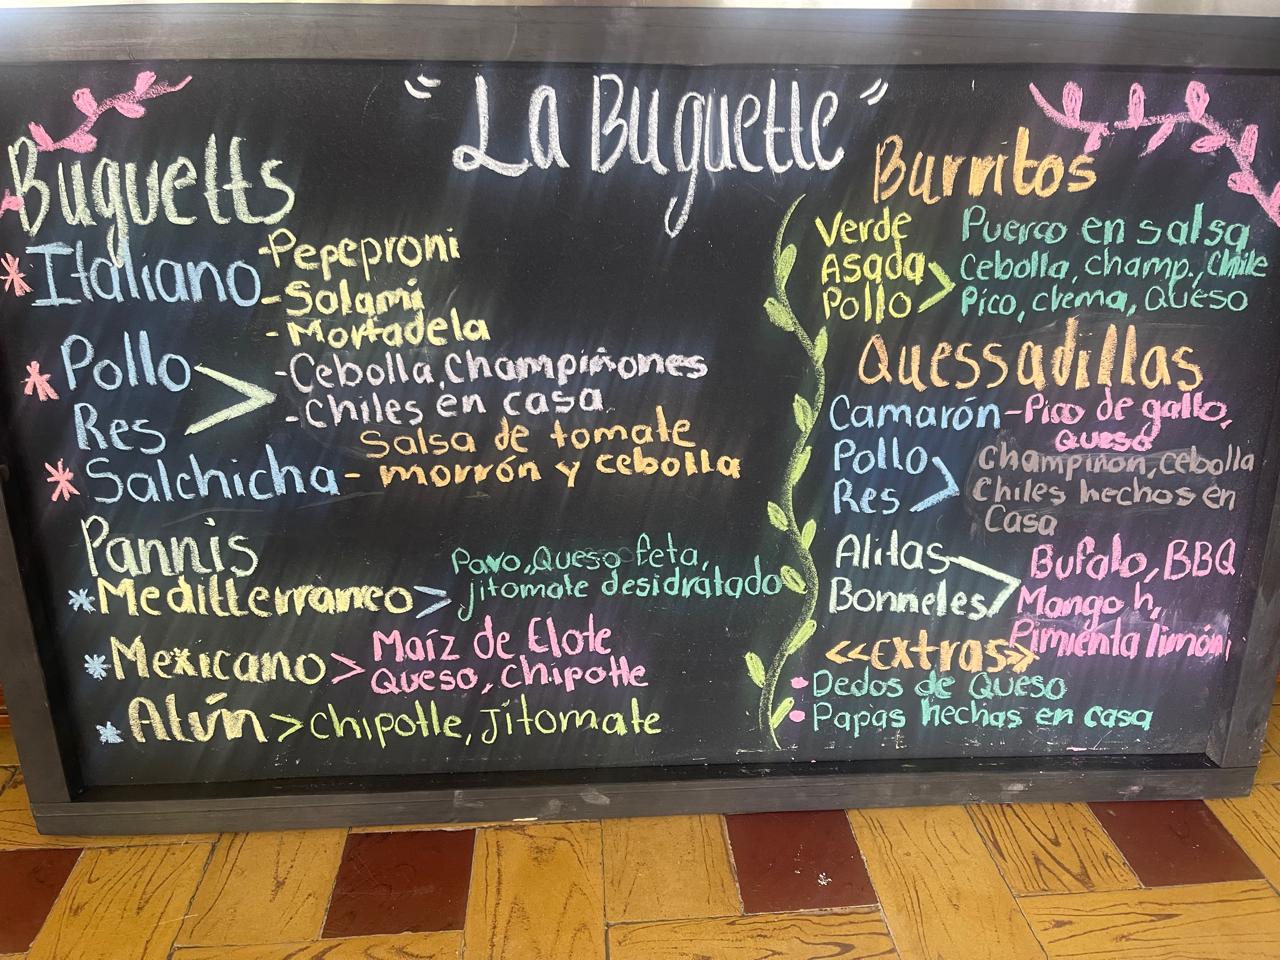 "La Buguette"
Buguetts
* Italiano
-Pepeproni
-Salami
-Mortadela
* Pollo
Res
> -Cebolla, Champiñones
-Chiles en casa
* Salchicha -
Salsa de tomate
morrón y cebolla
Pannis
* Mediterraneo >
Pavo, Queso feta,
jitomate desidratado
* Mexicano >
Maíz de Elote
Queso, Chipotle
* Atún > Chipotle, Jitomate
Burritos
Verde
Asada
Pollo
> Puerco en salsa
Cebolla, champ., Chile
Pico, crema, Queso
Quessadillas
Camarón - Pico de gallo,
Queso
Pollo
Res
> Champiñon, cebolla
Chiles hechos en
Casa
Alitas
Bonneles
> Bufalo, BBQ
Mango h,
Pimienta limón,
<<extras>>
• Dedos de Queso
• Papas hechas en casa